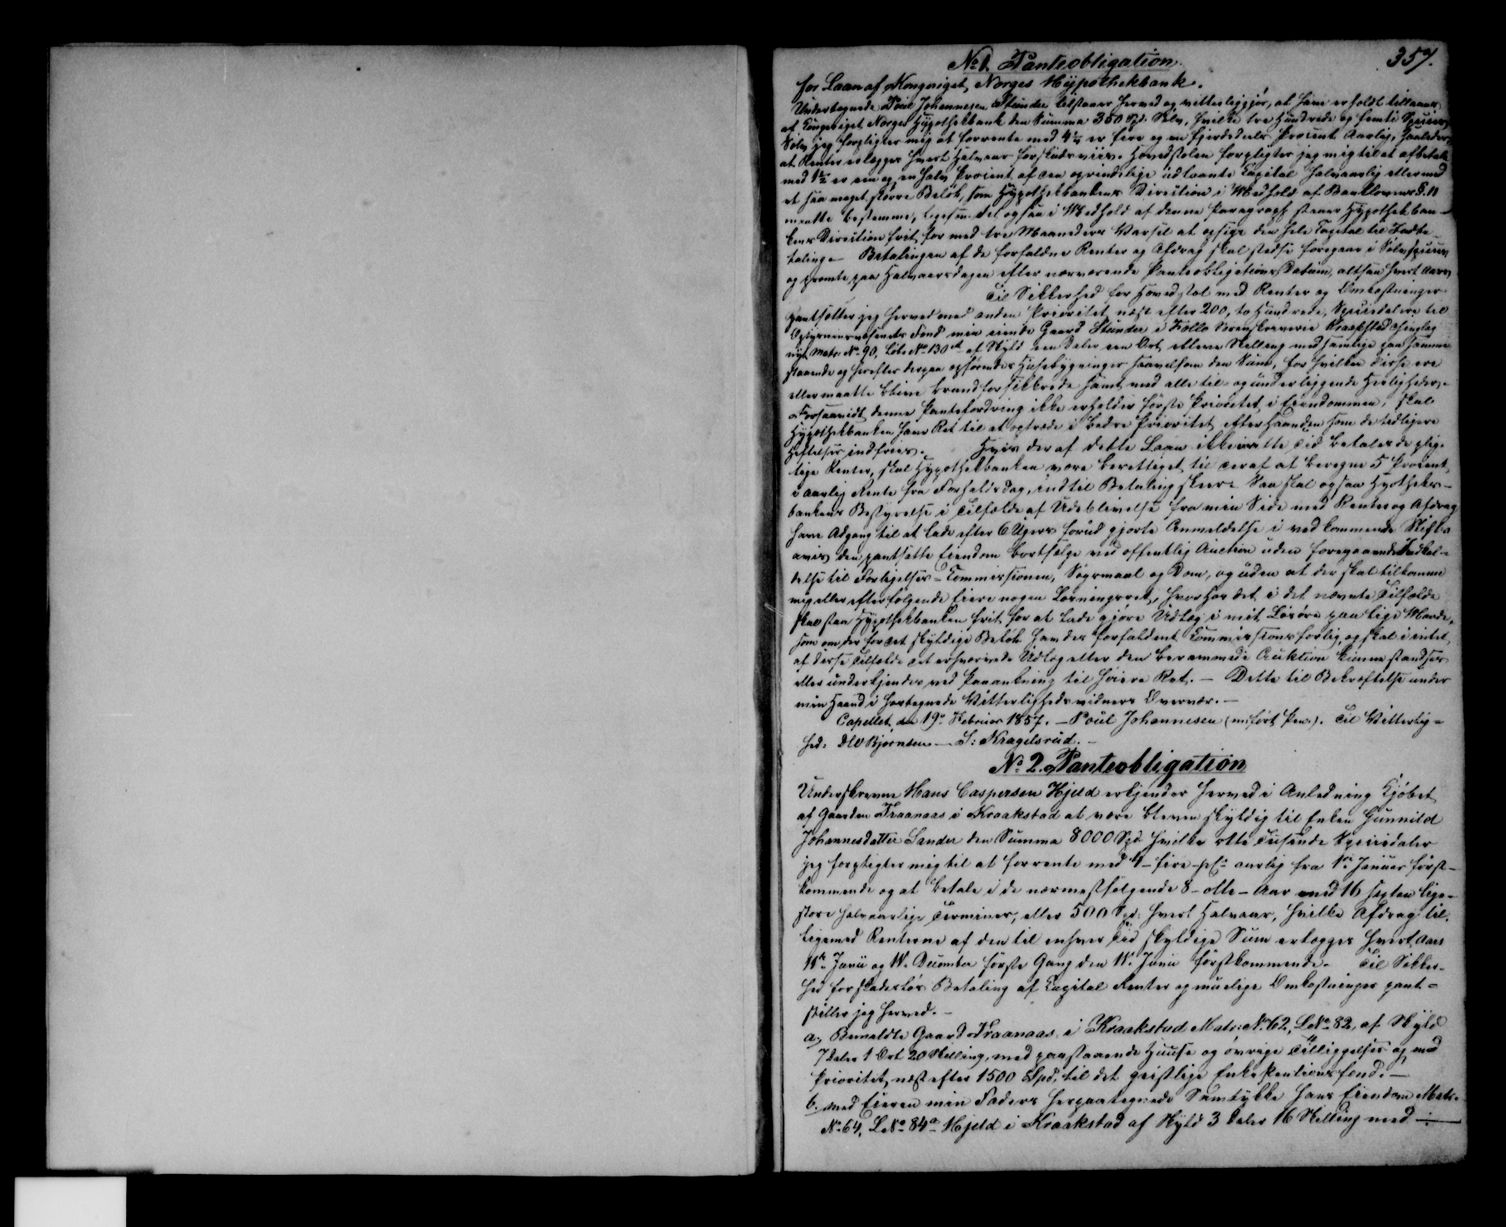 357.
No 1. Panteobligation.
for Laan af Kongeriget Norges Hypothekbank.
Undertegnede Poul Johannesen Stunder tilstaaer herved og vitterliggjør, at have erholdt tillaans
af Kongeriget Norges Hypothekbank den Summa 350 Spd. Sølv, hvilke tre Hundrede og femti Species
Sølv jeg forpligter mig at forrente med 4¼ er fire og en fjerdedeels Procent Aarlig, saaledes
at Renter erlægges hvert Halvaar forskudsviis. Hovedstolen forpligter jeg mig til at afbetale
med 1½ er een og en halv Procent af den oprindelige udlaante Capital halvaarlig eller med
et saa meget større Beløb, som Hypothekbankens Direction i Medhold af Banklovens §. 11
maatte bestemme, ligesom det ogsaa i Medhold af denne Paragraph staaer Hypothekban-
kens Direction frit, for med tre Maaneders Varsel at opsige den hele Capital til Indbe-
taling. Betalingen af de forfaldne Renter og Afdrag skal stedse foregaae i Sølvspecies
og promte paa Halvaarsdagen efter nærværende Panteobligations Datum, altsaa hvert Aars
Til Sikkerhed for Hovedstol med Renter og Omkostninger
pantsætter jeg herved med anden Prioritet næst efter 200, to Hundrede, Speciesdalere til
Oplysningsvæsenets Fond min eiende Gaard Stunder i Follo Sorenskriverie Kraakstad Thinglag
nye Matr. No 90, Løbe No 130 af Skyld een Daler een Ort elleve Skilling med samtlige paa samme
staaende og herefter derpaa opførendes Huusebygninger saavelsom den Sum, for hvilken disse ere
eller maatte blive brandforsikkrede samt med alle til- og underliggende Herligheder.-
Forsaavidt denne Pantefordring ikke erholder første Prioritet i Eiendommen, skal
Hypothekbanken have Ret til at optræde i bedre Prioritet efterhaanden som de tidligere
Heftelser indfries. Hvis der af dette Laan ikke i rette Tid betales de plig-
tige Renter, skal Hypothekbanken være berettiget til deraf at beregne 5 Procent
i aarlig Rente fra Forfaldsdag, indtil Betaling skeer. Saa skal ogsaa Hypothek-
bankens Bestyrelse i Tilfælde af Udeblivelse fra min Side med Renter og Afdrag
have Adgang til at lade efter 6 Ugers forud gjorte Anmeldelse i vedkommende Stifts-
avis den pantsatte Eiendom bortsælge ved offentlig Auction uden foregaaende Indkal-
delse til Forligelses-Commissionen, Søgsmaal og Dom, og uden at der skal tilkomme
mig eller efterfølgende Eiere nogen Løsningsret, hvorhos det i det nævnte Tilfælde
skal staa Hypothekbanken frit for at lade gjøre Udlæg i mit Løsøre paa lige Maade,
som om der for det skyldige Beløb havdes forfaldent Commissionsforlig, og skal i intet
af disse Tilfælde det erhvervede Udlæg eller den berammede Auktion kunne standses
eller underkjendes ved Paaankning til høiere Ret. — Dette til Bekræftelse under
min Haand i hostegnede Vitterlighedsvidners Overvær. —
Capellet, den 19de Februar 1857. — Poul Johannesen (m. ført Pen). Til Vitterlig-
hed: Bjørnsen — S: Kragelsrud. —
No 2. Panteobligation
Underskrevne Hans Caspersen Hjeld erkjender herved i Anledning Kjøbet
af Gaarden Traanaas i Kraakstad at være bleven skyldig til Enken Gunnild
Johannesdatter Sander den Summa 8000 Spd hvilke otte Tusinde Speciedaler
jeg forpligter mig til at forrente med 4 – fire – pCt. aarlig fra 1ste Januar først-
kommende og at betale i de nærmestfølgende 8 – otte – Aar med 16 sexten lige-
store halvaarlige Terminer, eller 500 Spd. hvert Halvaar, hvilke Afdrag til-
ligemed Renterne af den til enhver Tid skyldige Sum erlægges hvert Aars
11te Juni og 11te December første Gang den 11te Juni førstkommende. Til Sikker-
hed for skadesløs Betaling af Capital Renter og muelige Omkostninger pant-
stiller jeg herved. —
a, Bemeldte Gaard Traanaas i Kraakstad Matr: No 62, L No 82, af Skyld
7 Daler 1 Ort 20 Skilling, med paastaaende Huuse og øvrige Tilliggelser og med
Prioritet næst efter 1500 Spd. til det geistlige Enkepensionsfond. —
b. med Eieren min Faders herpaategnede Samtykke hans Eiendom Matr.
No 64, L No 84a Hjeld i Kraakstad af Skyld 3 Daler 16 Skilling med —